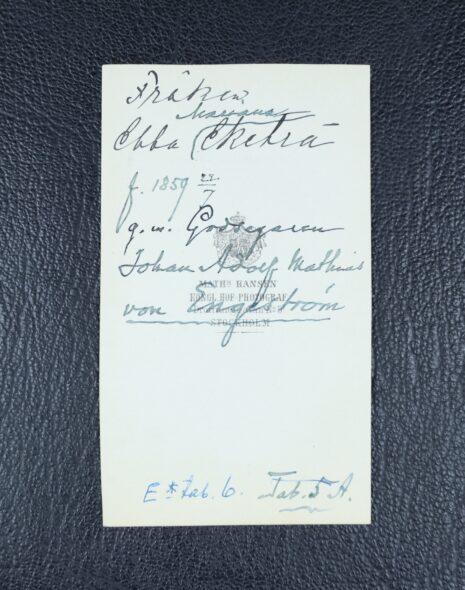 Fröken
Mariana
Ebba Eketrä
f. 1859 27/7
g.m. Godsegaren
Johan Adolf Mathias
MATHS HANSEN
KONGL. HOF-PHOTOGRAF
von Engeström
STOCKHOLM
E * Tab. 6. Tab. 5 A.